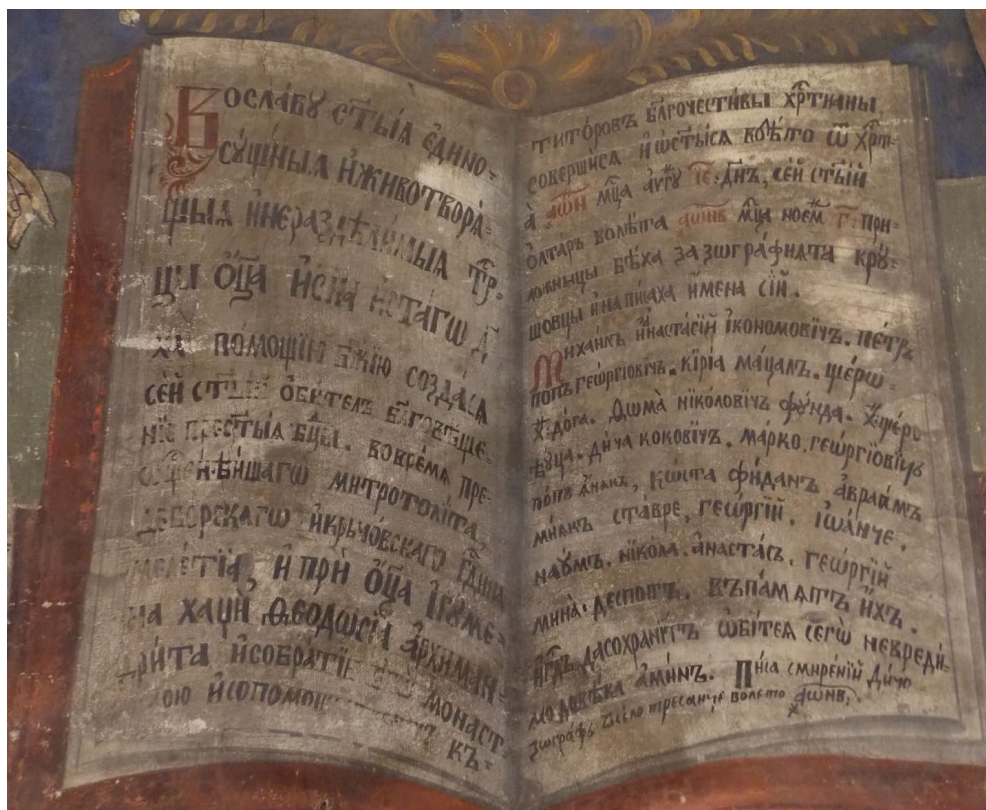 Вославꙋ ст҃ыѧ єдино-
сꙋщныѧ и҆животворѧ-
щыѧ и҆нєраздѣлимыѧ тр҃-
цы ѻ҆ц҃а и҆сн҃а и҆ст҃агѡ д҃
ха помощїю бж҃їю создасѧ
сєй ѻ҆битєль бл҃говѣщє-
нїє прєст҃ыѧ бц҃ы. воврємѧ прє-
ѡсщ҃єннѣйшагѡ митрополїта
дєборскагѡ и҆крьчовскаго гд҃ина
мєлєтїа, и҆ при ѻ҆ц҃а і҆гꙋмє-
на хаџи Ѳєодѡсїа архиман-
дрита и҆собратїє єгѡ монаст.
ою и҆сопомощ къ-
титоровъ бл҃гочєстивы хр҃тїаны
совєршисѧ и҆ ѡ҆ст҃исѧ волѣто ѿ хр҃т-
а ҂аѡ҃н мц҃а аѵгꙋ і҃є. дн҃ь, сєй ст҃ый
ѻ҆лтарь волѣта ҂аѡн҃в мц҃а ноєм г҃. при-
ложницы бѣха зазѡграфиата крꙋ-
шовцы и҆написаха имєна сїй.
Михаилъ и҆настасїй і҆кономовїчъ. пєтръ
попъ гєѡргїовїчъ. кїрїа мацанъ. щєрю
х: дога. Дѡма нїколовїчъ фꙋнда. х: щєрю
ѣꙋца. дича коковїчъ. марко, гєѡргїовїчъ
попъ кѡста фиданъ авраамъ
миꙗлъ ставрє, гєѡргїй. і҆ѡанчє.
наꙋмъ. нїкола. анастасъ. гєѡргїй
мина. дєспотъ. въпамѧтъ ихъ.
и҆гд҃ь дасохранїтъ ѡ҆битєл сєгѡ нєврєди-
мо довѣка аминъ. Писа смирєнїй Дичо
зѡграфъ ѿсєло трєсанчє волєто ҂аѡн҃в.